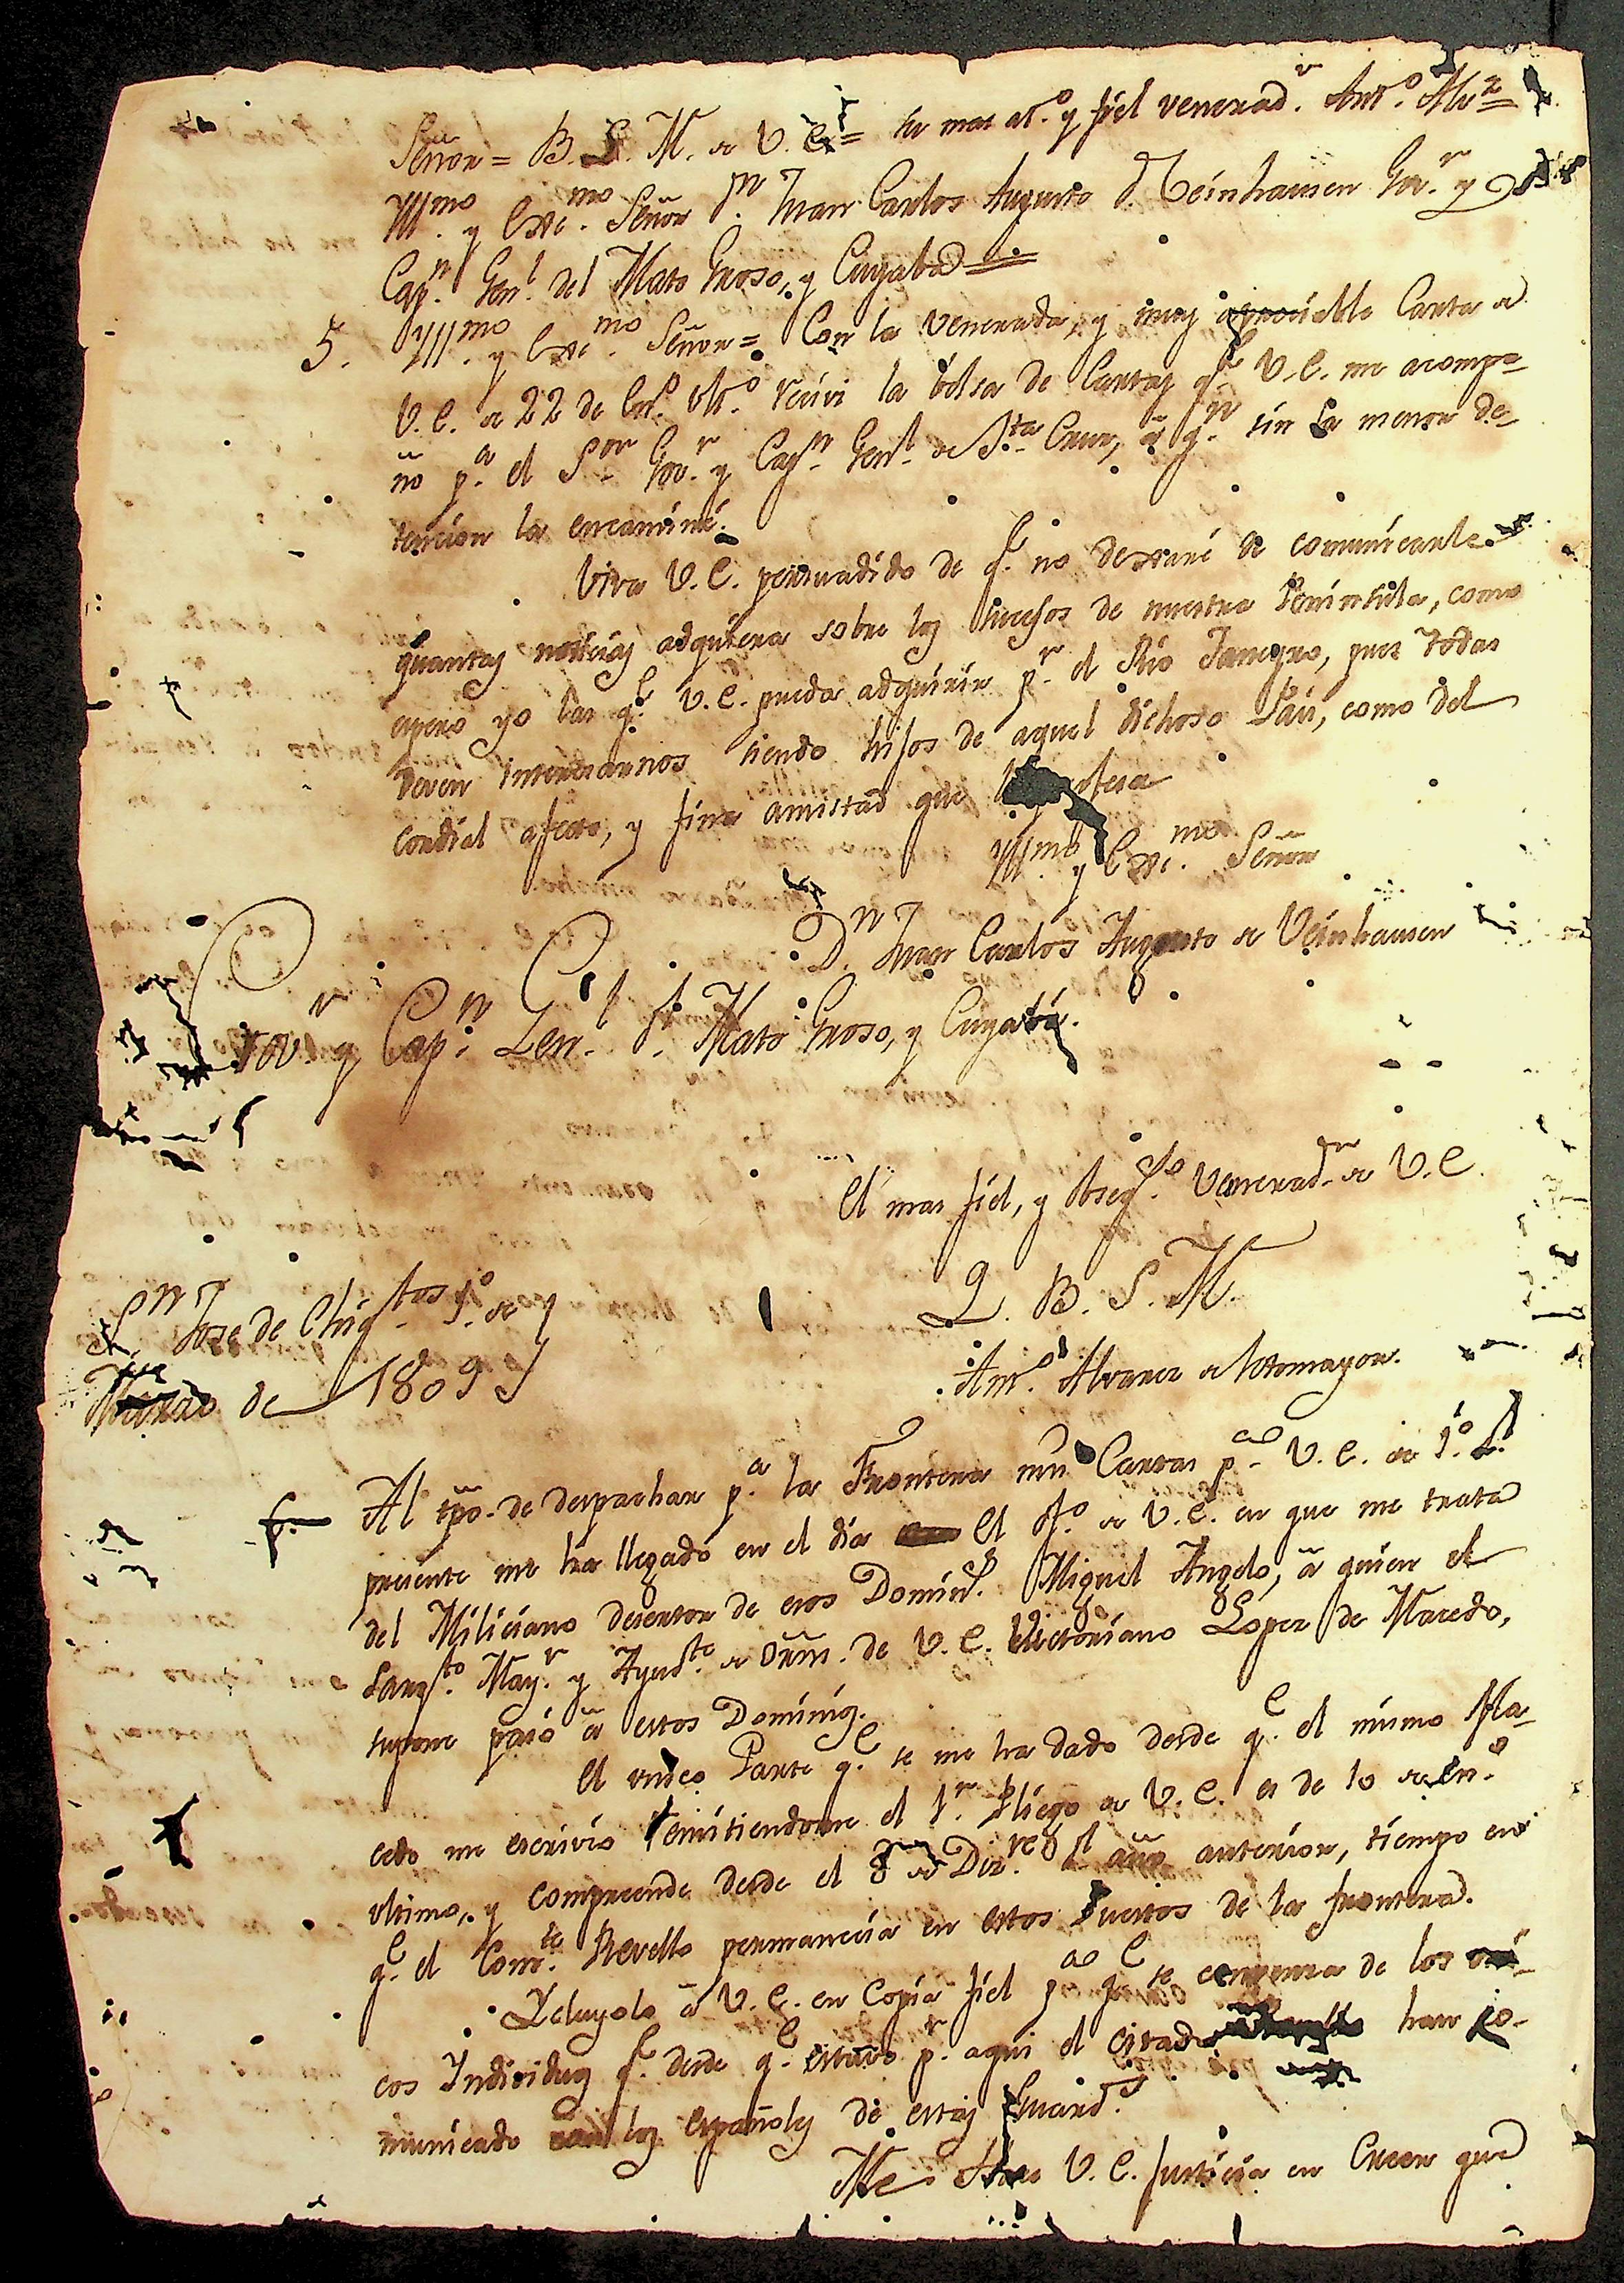 Señor = B. S. M. de V. E. = su mas at.º y fiel venerad.r Ant.º Alv.z
Yll.mo y Exc.mo Señor D.n Juan Carlos Augusto d Oeinhausen Gov.r y
Cap.n Gen.l del Mato Groso, y Cuyabá
5. Yll.mo y Exc.mo Señor = Con la venerada, y muy apreciable Carta de
V. E. de 22 de En.º ult.º reciví la bolsa de Cartas q.e V. E. me acompa-
ño p.a el S.or Gov.r y Cap.n Gen.l de S.ta Cruz, â q.n sin la menor de-
tencion la encaminé.
Viva V. E. persuadido de q.e no dexaré de comunicarle
quantas noticias adquiera sobre los sucesos de nuestra Peninsula, como
espero yo las q.e V. E. pueda adquirir p.r el Rio Janeyro, pues todas
deven interesarnos siendo hijos de aquel dichoso Pais, como del
cordial afecto, y fina amistad que
Yll.mo y Exc.mo Señor
D.n Juan Carlos Augusto de Oeinhausen
Gov.r y Cap.n Gen.l d. Mato Groso, y Cuyabá.
El mas fiel, y obseq.so Venerad.r de V. E.
Q. B. S. M.
Ant.º Alvarez de Sotomayor.
S.n Jose de Chiq.tos 1.º de
Marzo de 1809
6. Al tpõ. de despachar p.a la Frontera mis Cartas p.a V. E. de 1.º del
presente me ha llegado en el dia el of.º de V. E. en que me trata
del Miliciano desertor de esos Domin.s Miguel Angelo, â quien el
Sarg.to May.r y Ayud.te de Orñ. de V. E. Victoriano López de Macedo,
supone pasó â estos Dominios.
El unico Parte q.e se me ha dado desde q.e el mismo Ma-
cedo me escrivio remitiendome el 1.r Pliego de V. E. es de 10 de En.º
ultimo, y comprende desde el 8 de Diz.re del año anterior, tiempo en
q.e el Com.te Revello permanecia en estos Puestos de la frontera.
Ycluyola â V. E. en Copia fiel p.a q.e se cerciora de los
cos Individuos q.e desde q.e estuvo p.r aqui el citado han co-
municado con los españoles de estas Guard.s
Me hace V. E. Justicia en Creer que